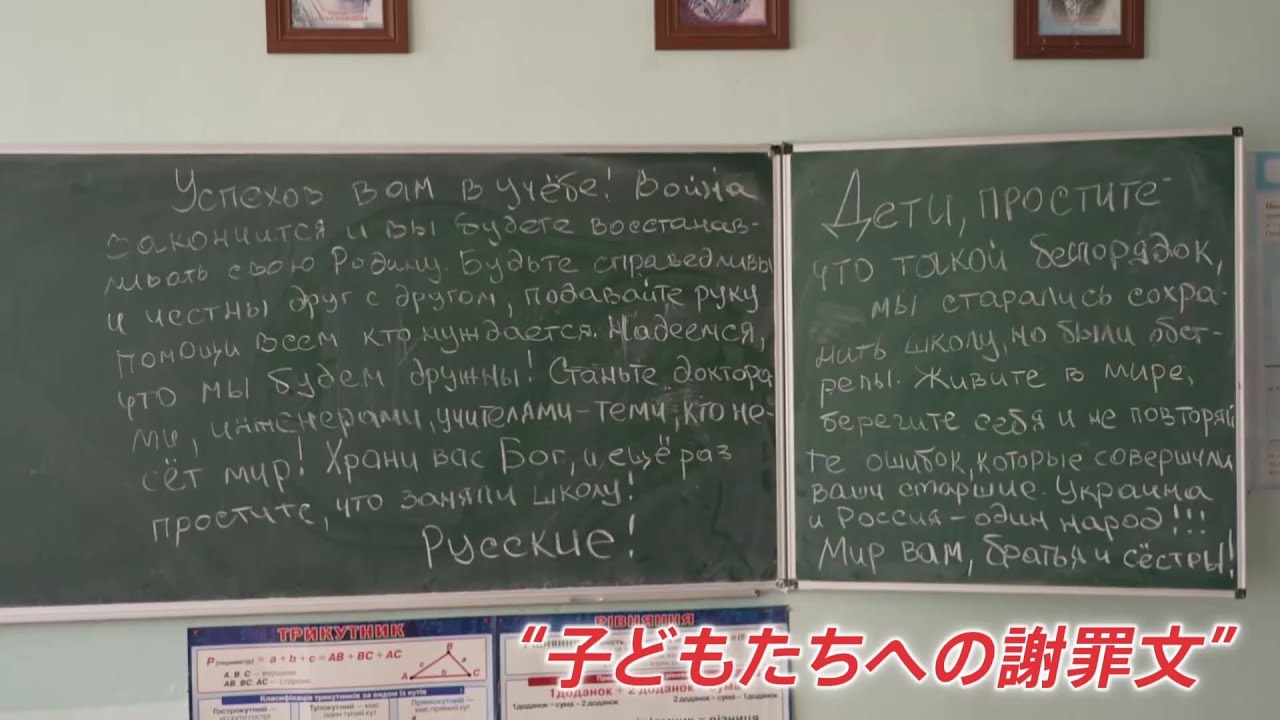 Успехов вам в учёбе! Война
закончится и вы будете восстанав-
ливать свою Родину. Будьте справедливы
и честны друг с другом, подавайте руку
помощи всем кто нуждается. Надеемся,
что мы будем дружны! Станьте доктора
ми, инженерами, учителями-теми, кто не-
сёт мир! Храни вас Бог, и ещё раз
простите, что заняли школу!
Русские!
Дети, простите
что такой беспорядок,
мы старались сохра-
нить школу, но были обст-
релы. Живите в мире,
берегите себя и не повторяй
те ошибок, которые совершили
ваши старшие. Украина
и Россия - один народ!!!
Мир вам, братья и сёстры!
ТРИКУТНИК
P = a + b + c = AB + BC + AC
A, B, C – вершини
AB, BC, AC – сторони
B
c a
A b C
Класифікація трикутників за видом їх кутів
Гострокутний – Тупокутний – має Прямокутний –
усі кути гострі один тупий кут має прямий кут
РІВНЯННЯ
1доданок + 2 доданок = сума
1доданок = сума – 2 доданок 2 доданок = сума – 1доданок
= різниця
“子どもたちへの謝罪文”